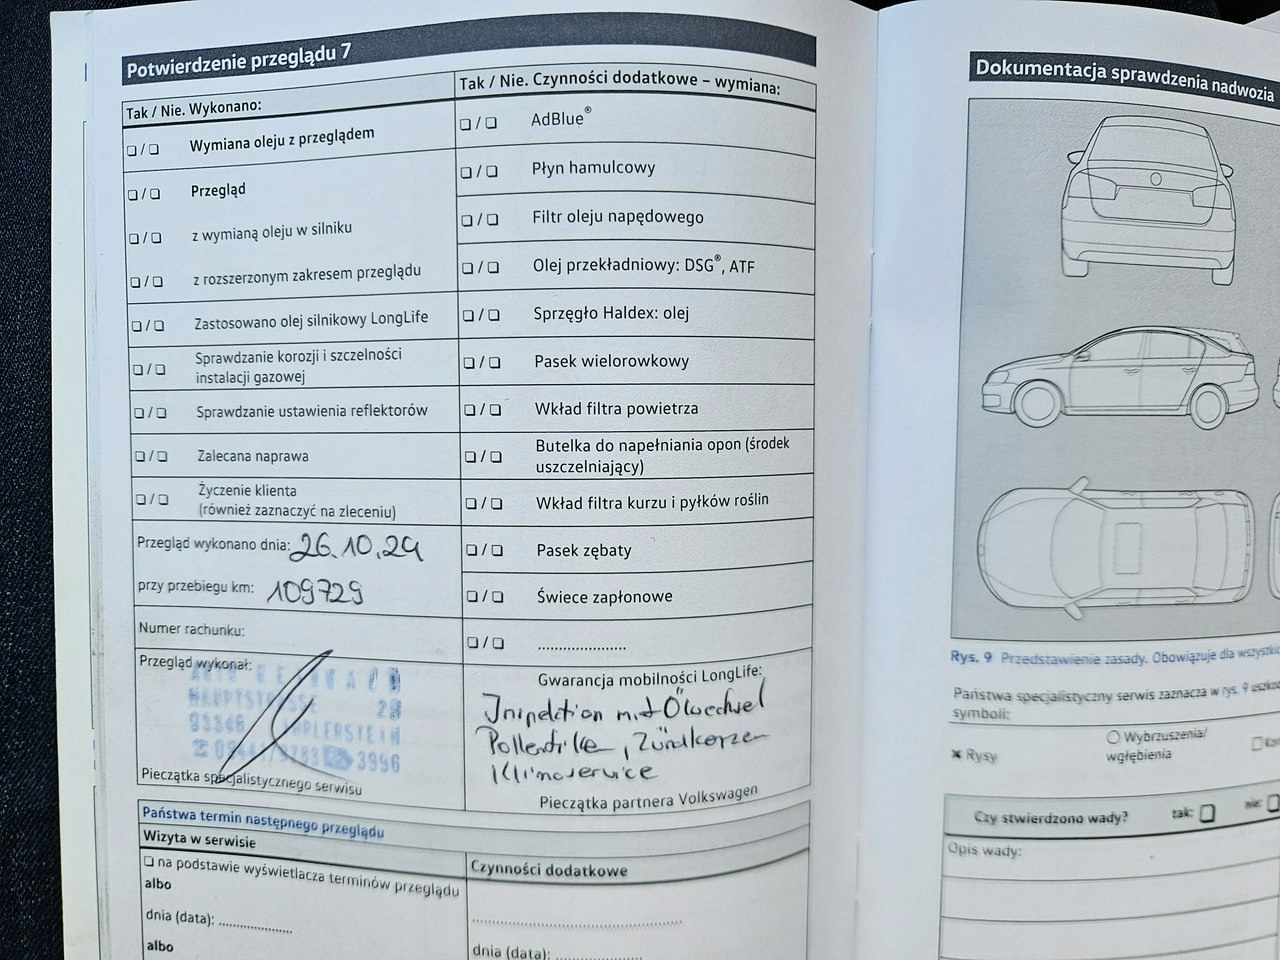 Potwierdzenie przeglądu 7
Tak / Nie. Wykonano:
❏ / ❏ Wymiana oleju z przeglądem
❏ / ❏ Przegląd
❏ / ❏ z wymianą oleju w silniku
❏ / ❏ z rozszerzonym zakresem przeglądu
❏ / ❏ Zastosowano olej silnikowy LongLife
❏ / ❏ Sprawdzanie korozji i szczelności
instalacji gazowej
❏ / ❏ Sprawdzanie ustawienia reflektorów
❏ / ❏ Zalecana naprawa
❏ / ❏ Życzenie klienta
(również zaznaczyć na zleceniu)
Przegląd wykonano dnia: 26.10.24
przy przebiegu km: 109729
Numer rachunku:
Przegląd wykonał:
HAUPTSTRASSE 29
93346
3996
Pieczątka specjalistycznego serwisu
Tak / Nie. Czynności dodatkowe – wymiana:
❏ / ❏ AdBlue®
❏ / ❏ Płyn hamulcowy
❏ / ❏ Filtr oleju napędowego
❏ / ❏ Olej przekładniowy: DSG®, ATF
❏ / ❏ Sprzęgło Haldex: olej
❏ / ❏ Pasek wielorowkowy
❏ / ❏ Wkład filtra powietrza
❏ / ❏ Butelka do napełniania opon (środek
uszczelniający)
❏ / ❏ Wkład filtra kurzu i pyłków roślin
❏ / ❏ Pasek zębaty
❏ / ❏ Świece zapłonowe
❏ / ❏ .....................
Gwarancja mobilności LongLife:
Inspektion mit Ölwechsel
Pollenfilter, Zündkerzen
Klimaservice
Pieczątka partnera Volkswagen
Państwa termin następnego przeglądu
Wizyta w serwisie
❏ na podstawie wyświetlacza terminów przeglądu
albo
dnia (data): ..................
albo
Czynności dodatkowe
..................................................
dnia (data): .....................
Dokumentacja sprawdzenia nadwozia
Rys. 9 Przedstawienie zasady. Obowiązuje dla
Państwa specjalistyczny serwis zaznacza w rys. 9
symboli:
✖ Rysy
○ Wybrzuszenia/
wgłębienia
Czy stwierdzono wady? tak: ❏ nie: ❏
Opis wady: